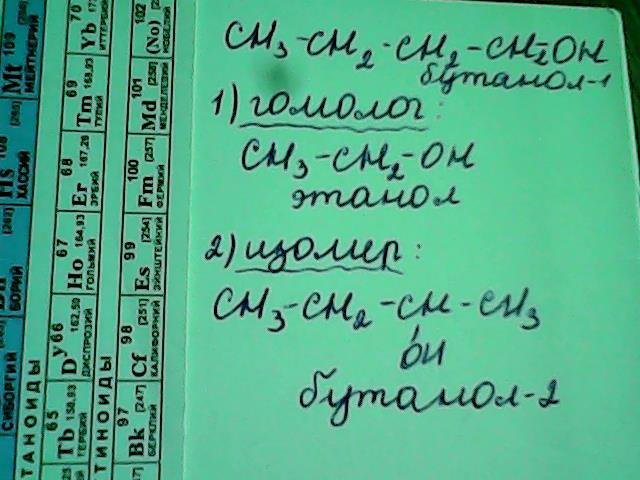 CH₃-CH₂-CH₂-CH₂-OH
бутанол-1
1) гомолог:
CH₃-CH₂-OH
этанол
2) изомер:
CH₃-CH₂-CH-CH₃
OH
бутанол-2
Mt 109 [266]
МЕЙТНЕРИЙ
ХАССИЙ
БОРИЙ
СИБОРГИЙ
ТАНОИДЫ
70 Yb
ИТТЕРБИЙ
69 Tm 168,93
ТУЛИЙ
68 Er 167,26
ЭРБИЙ
67 Ho 164,93
ГОЛЬМИЙ
66 Dy 162,50
ДИСПРОЗИЙ
65 Tb 158,93
ТЕРБИЙ
ТИНОИДЫ
102 (No)
НОБЕЛИЙ
101 Md [258]
МЕНДЕЛЕВИЙ
100 Fm [257]
ФЕРМИЙ
99 Es [254]
ЭЙНШТЕЙНИЙ
98 Cf [251]
КАЛИФОРНИЙ
97 Bk [247]
БЕРКЛИЙ